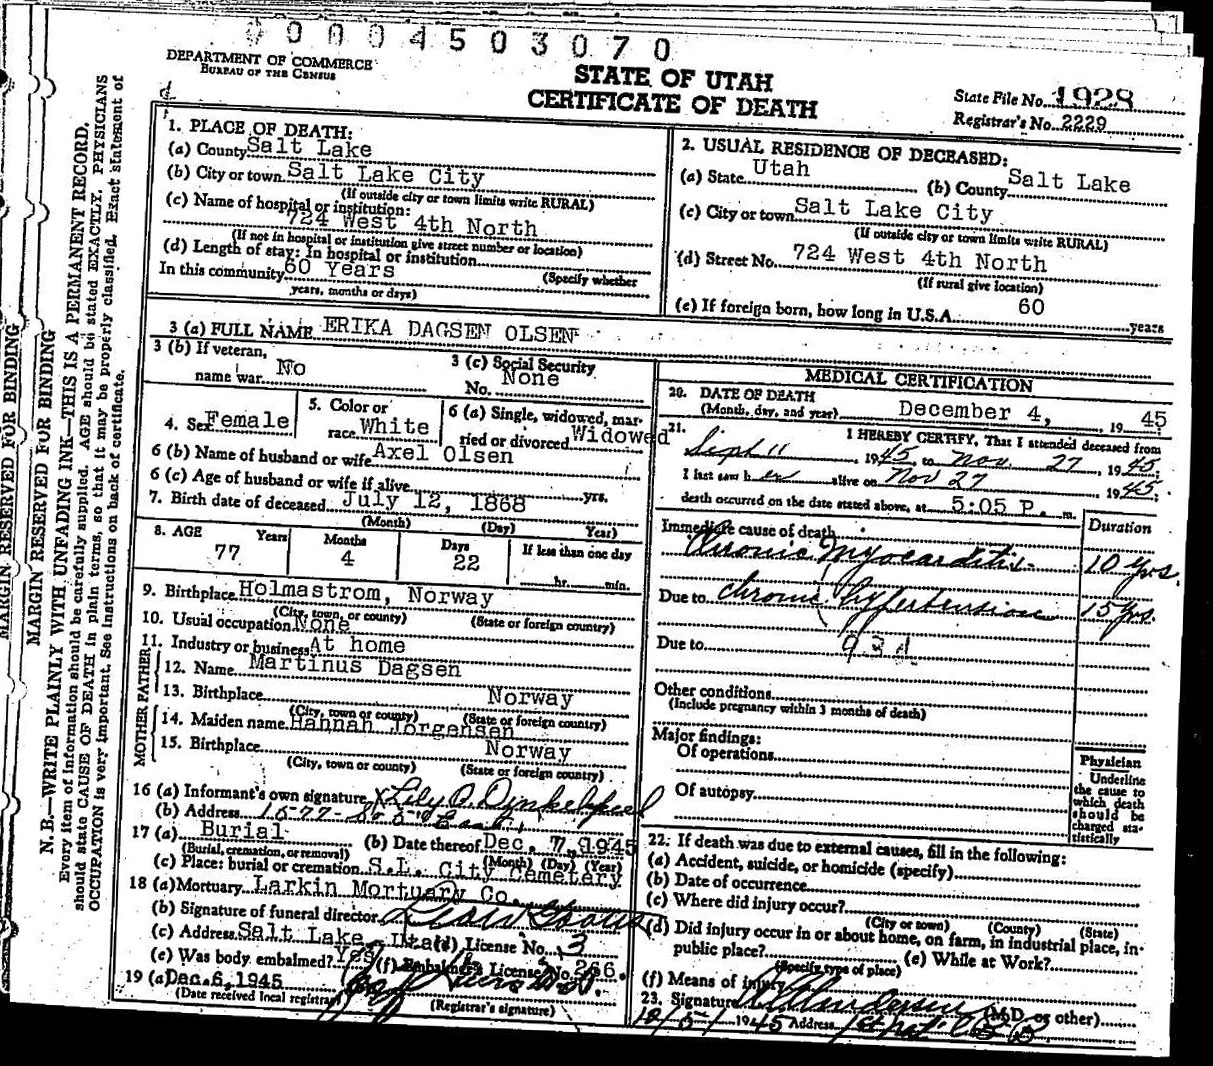 0004503070
DEPARTMENT OF COMMERCE
BUREAU OF THE CENSUS
STATE OF UTAH
CERTIFICATE OF DEATH
State File No. 1928
Registrar's No. 2229
MARGIN RESERVED FOR BINDING
MARGIN RESERVED FOR BINDING
N. B.—WRITE PLAINLY WITH UNFADING INK—THIS IS A PERMANENT RECORD.
Every item of information should be carefully supplied. AGE should be stated EXACTLY. PHYSICIANS
should state CAUSE OF DEATH in plain terms, so that it may be properly classified. Exact statement of
OCCUPATION is very important. See instructions on back of certificate.
1. PLACE OF DEATH:
(a) County Salt Lake
(b) City or town Salt Lake City
(If outside city or town limits write RURAL)
(c) Name of hospital or institution:
724 West 4th North
(If not in hospital or institution give street number or location)
(d) Length of stay: In hospital or institution
In this community 60 Years (Specify whether
years, months or days)
2. USUAL RESIDENCE OF DECEASED:
(a) State Utah (b) County Salt Lake
(c) City or town Salt Lake City
(If outside city or town limits write RURAL)
(d) Street No. 724 West 4th North
(If rural give location)
(e) If foreign born, how long in U.S.A. 60 years
3 (a) FULL NAME ERIKA DAGSEN OLSEN
3 (b) If veteran, name war No
3 (c) Social Security No. None
4. Sex Female
5. Color or race White
6 (a) Single, widowed, married or divorced Widowed
6 (b) Name of husband or wife Axel Olsen
6 (c) Age of husband or wife if alive yrs.
7. Birth date of deceased July 12, 1868
(Month) (Day) Year)
8. AGE Years Months Days If less than one day
77 4 22 hr. min.
9. Birthplace Holmastrom, Norway
(City, town or county) (State or foreign country)
10. Usual occupation None
11. Industry or business At home
FATHER
12. Name Martinus Dagsen
13. Birthplace Norway
(City, town or county) (State or foreign country)
MOTHER
14. Maiden name Hannah Jorgensen
15. Birthplace Norway
(City, town or county) (State or foreign country)
16 (a) Informant's own signature X Lily O. Dinkelspiel
(b) Address 1577 - So 5th East
17 (a) Burial (b) Date thereof Dec. 7, 1945
(Burial, cremation, or removal) (Month) (Day) (Year)
(c) Place: burial or cremation S.L. City Cemetery
18 (a) Mortuary Larkin Mortuary Co.
(b) Signature of funeral director
(c) Address Salt Lake, Utah (d) License No. 3
(e) Was body embalmed? Yes (f) Embalmer's License No. 266.
19 (a) Dec. 6, 1945
(Date received local registrar) (Registrar's signature)
MEDICAL CERTIFICATION
20. DATE OF DEATH
(Month, day, and year) December 4, , 19 45
21. I HEREBY CERTIFY, That I attended deceased from
Sept 11, 1945, to Nov. 27, 1945;
I last saw her alive on Nov 27 1945;
death occurred on the date stated above, at 5:05 P. m.
Duration
Immediate cause of death
Chronic Myocarditis 10 yrs.
Due to chronic hypertension 15 yrs.
Due to 93d
Other conditions
(Include pregnancy within 3 months of death)
Major findings:
Of operations
Of autopsy
Physician
Underline
the cause to
which death
should be
charged sta-
tistically
22. If death was due to external causes, fill in the following:
(a) Accident, suicide, or homicide (specify)
(b) Date of occurrence
(c) Where did injury occur?
(City or town) (County) (State)
(d) Did injury occur in or about home, on farm, in industrial place, in
public place? (e) While at Work?
(Specify type of place)
(f) Means of injury
23. Signature (M.D. or other)
12/5/ 1945 Address